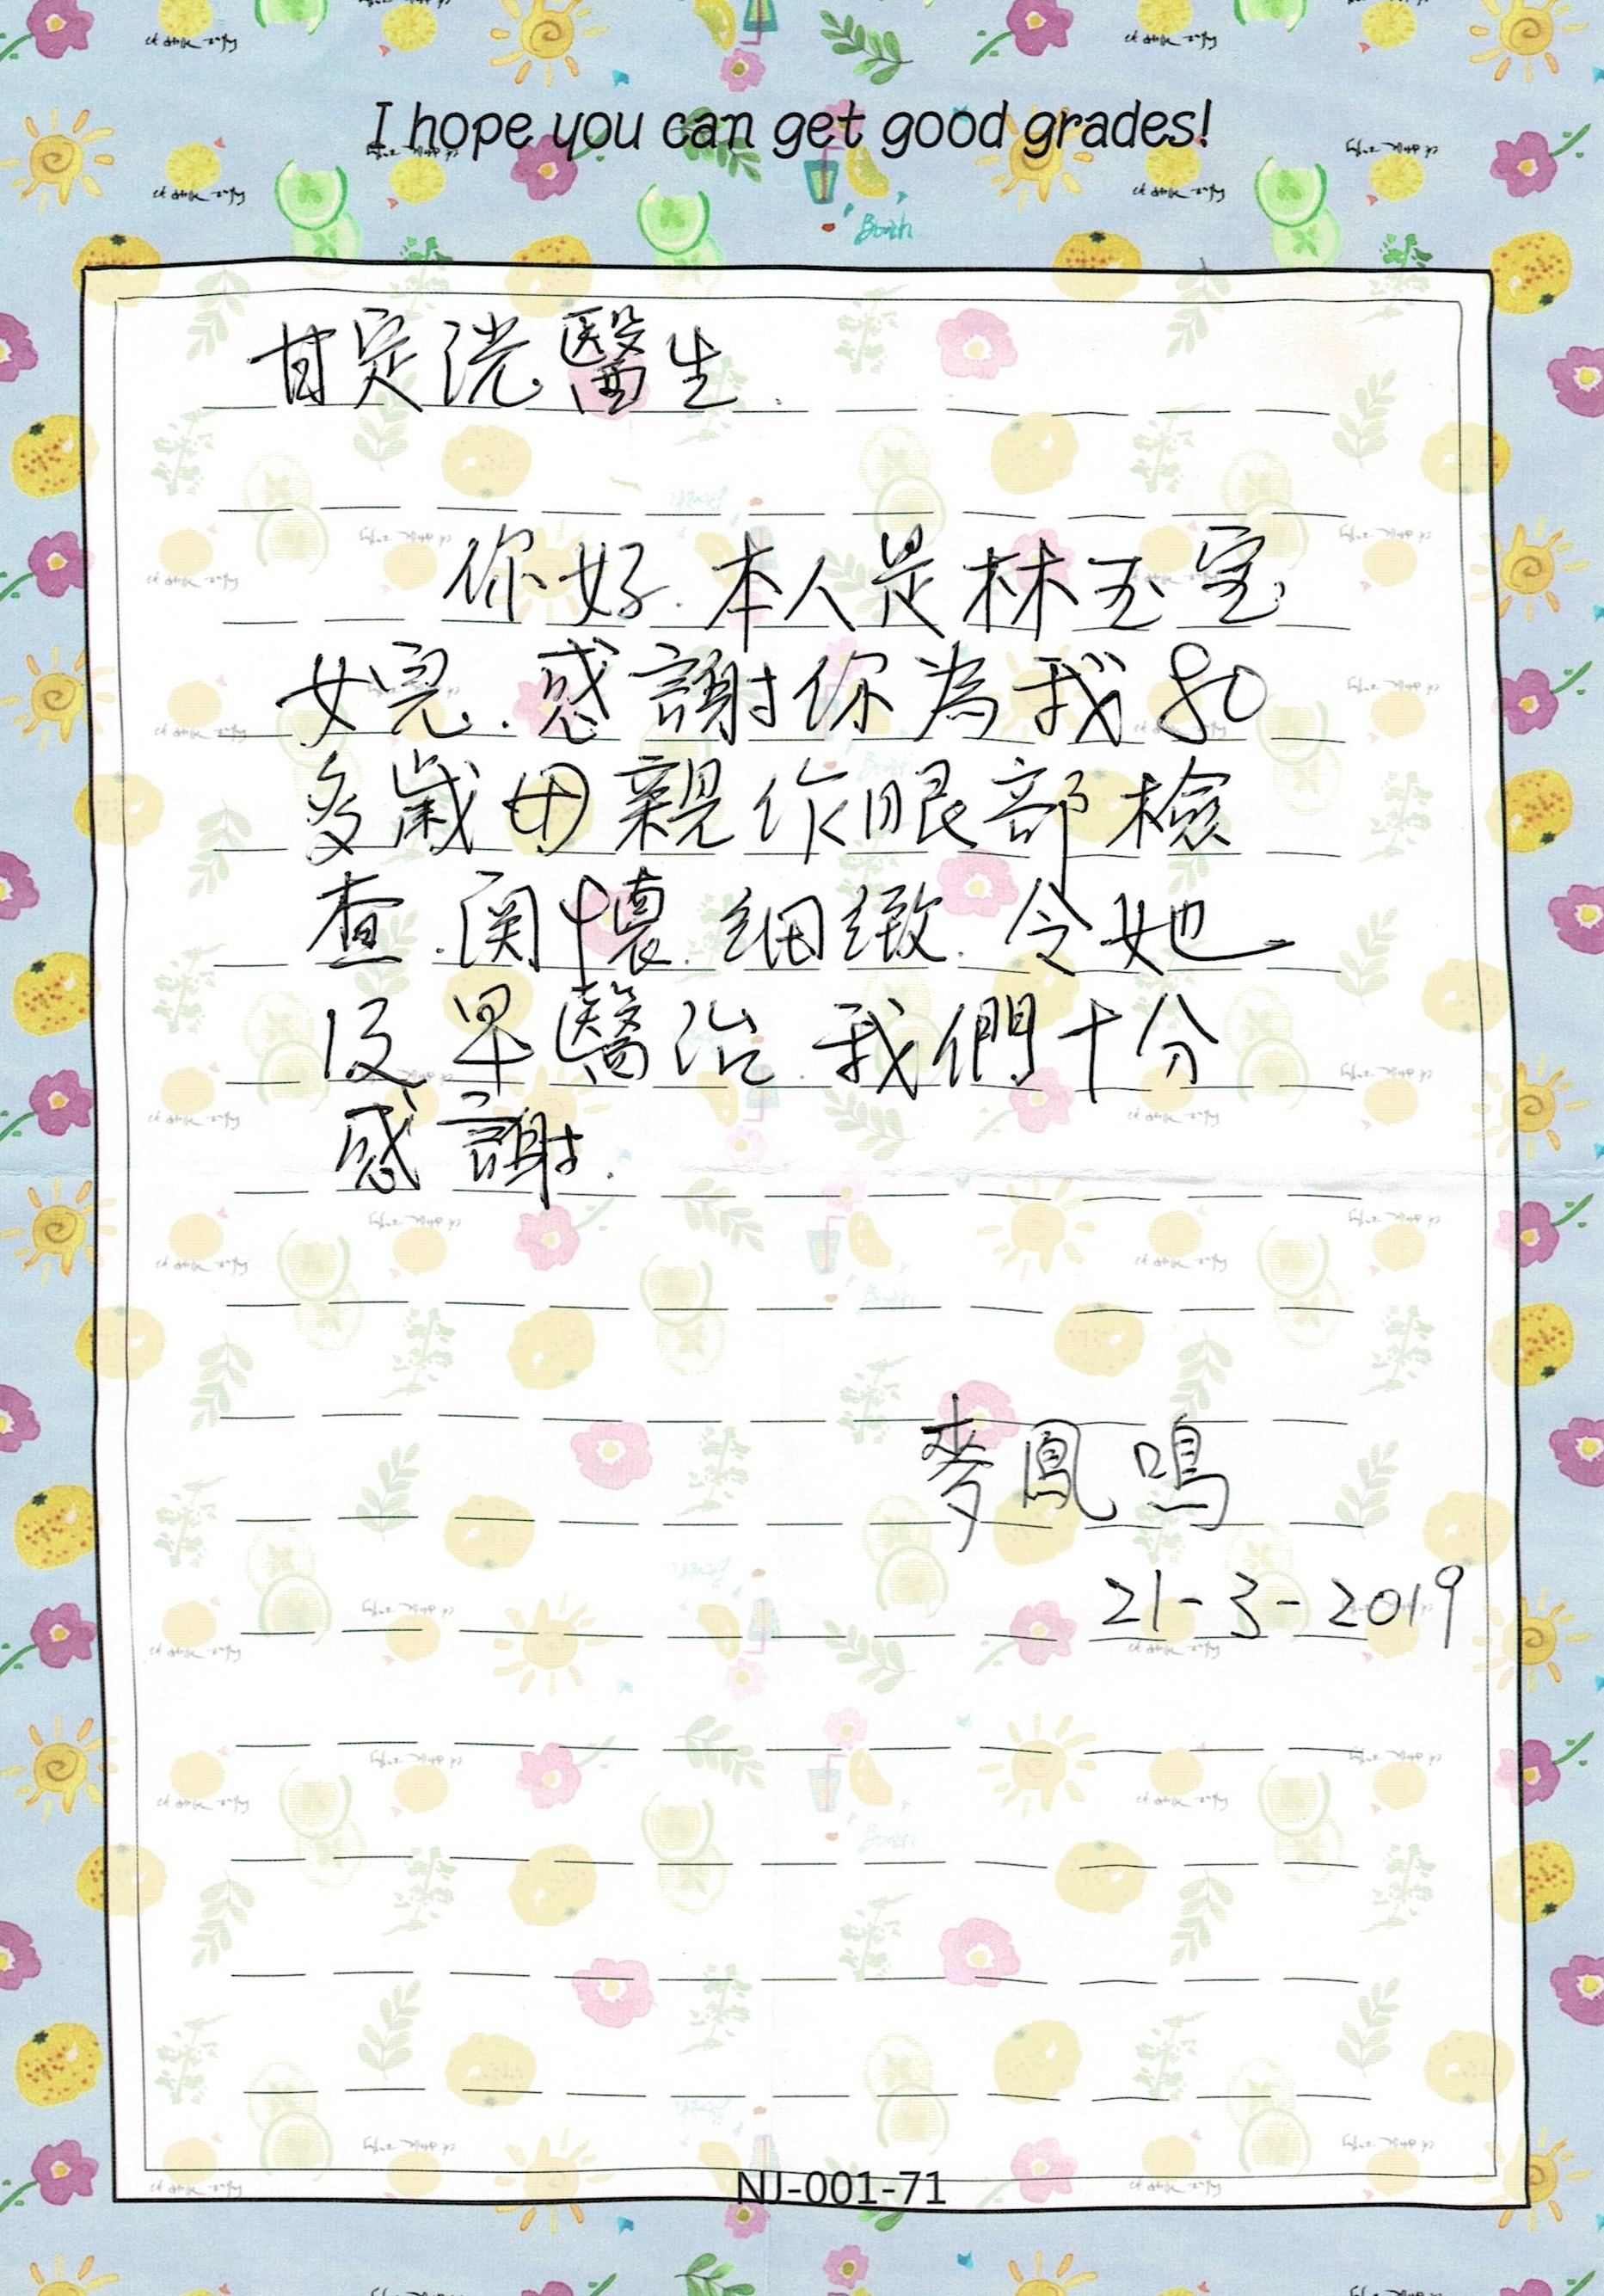 I hope you can get good grades!
甘定滉醫生.
你好.本人是林玉宝
女兒.感謝你為我80
多歲母親作眼部檢
查.関懷.細緻.令她
及早醫治.我們十分
感謝.
麥鳳鳴
21-3-2019
NJ-001-71